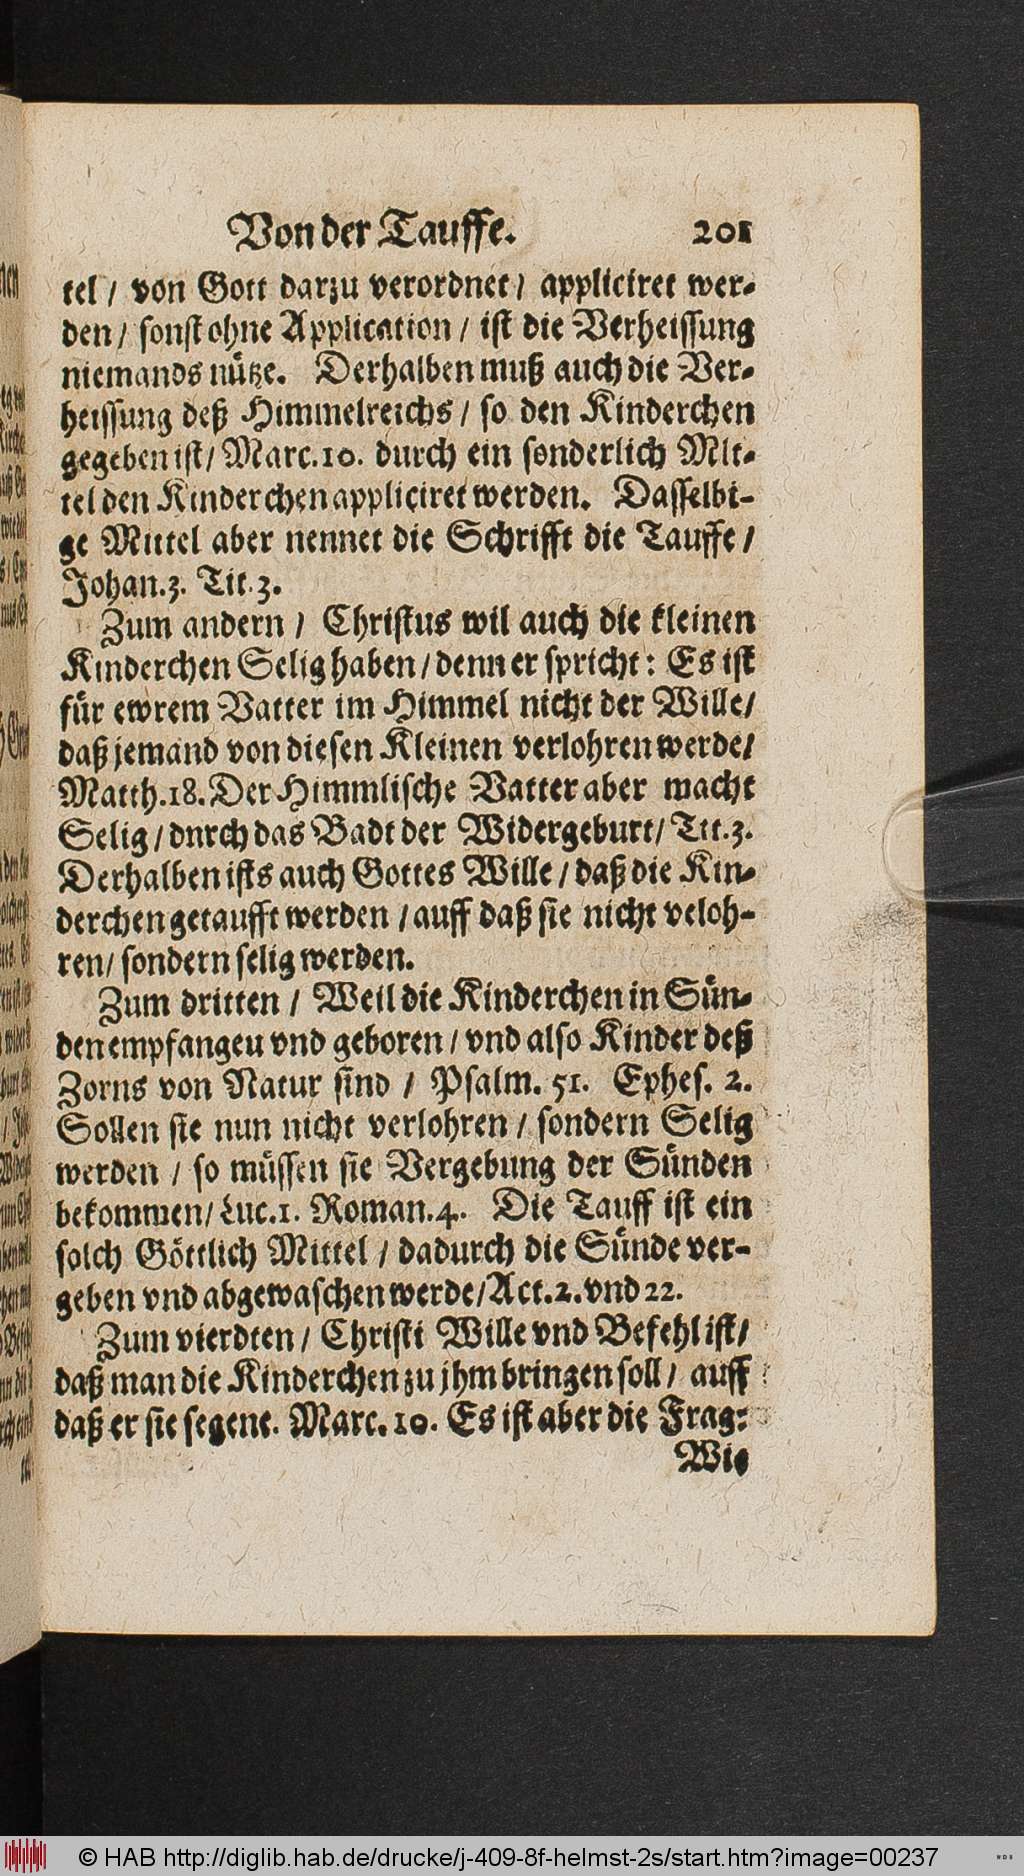 Von der Tauffe. 201
tel / von Gott darzu verordnet / appliciret wer-
den / sonst ohne Application / ist die Verheissung
niemands nütze. Derhalben muß auch die Ver-
heissung deß Himmelreichs / so den Kinderchen
gegeben ist / Marc. 10. durch ein sonderlich Mit-
tel den Kinderchen appliciret werden. Dasselbi-
ge Mittel aber nennet die Schrifft die Tauffe /
Johan. 3. Tit. 3.
Zum andern / Christus wil auch die kleinen
Kinderchen Selig haben / denn er spricht: Es ist
für ewrem Vatter im Himmel nicht der Wille /
daß jemand von diesen Kleinen verlohren werde /
Matth. 18. Der Himmlische Vatter aber macht
Selig / dnrch das Badt der Widergeburt / Tit. 3.
Derhalben ists auch Gottes Wille / daß die Kin-
derchen getaufft werden / auff daß sie nicht veloh-
ren / sondern selig werden.
Zum dritten / Weil die Kinderchen in Sün-
den empfangeu vnd geboren / vnd also Kinder deß
Zorns von Natur sind / Psalm. 51. Ephes. 2.
Sollen sie nun nicht verlohren / sondern Selig
werden / so müssen sie Vergebung der Sünden
bekommen / Luc. 1. Roman. 4. Die Tauff ist ein
solch Göttlich Mittel / dadurch die Sünde ver-
geben vnd abgewaschen werde / Act. 2. vnd 22.
Zum vierdten / Christi Wille vnd Befehl ist /
daß man die Kinderchen zu jhm bringen soll / auff
daß er sie segene. Marc. 10. Es ist aber die Frag:
Wie
© HAB http://diglib.hab.de/drucke/j-409-8f-helmst-2s/start.htm?image=00237